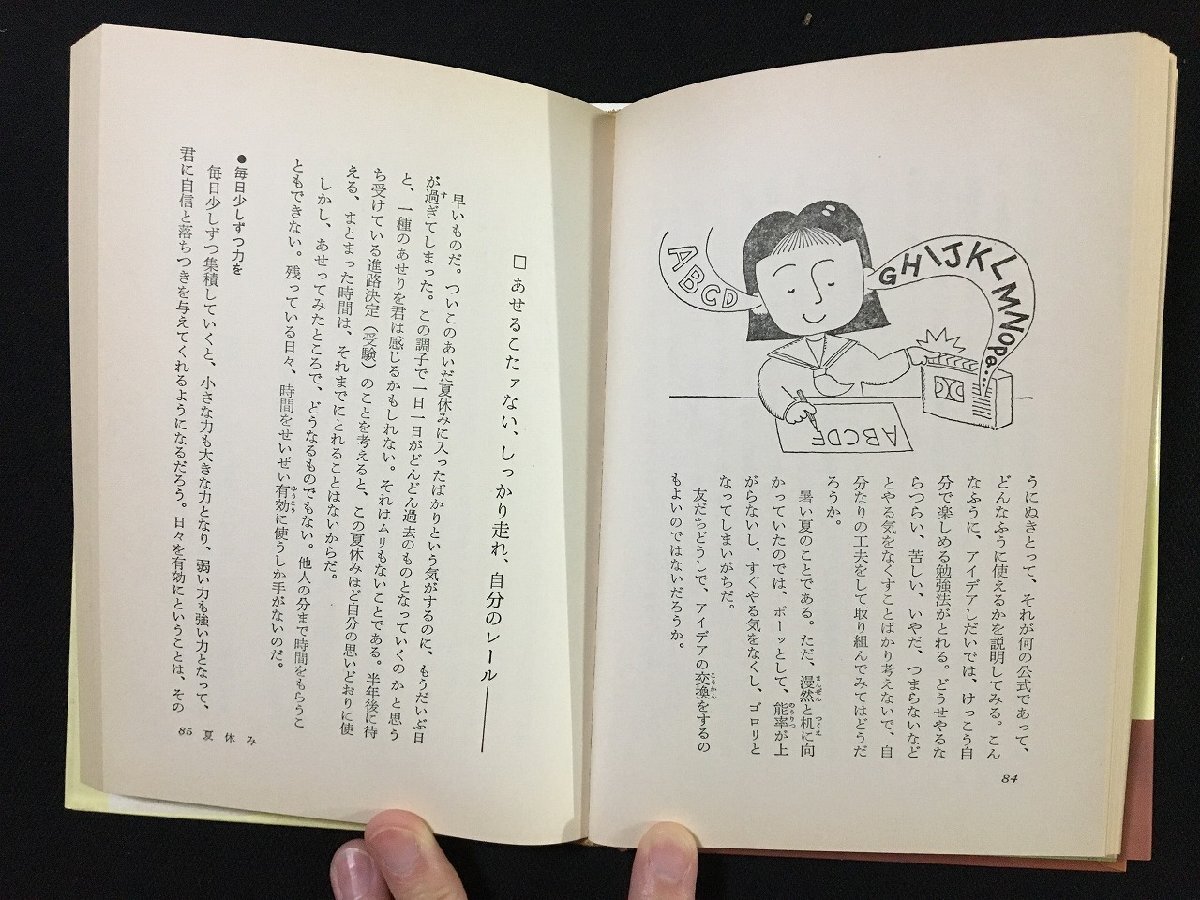 ABCD
GHIJKLMNOPQ...
ABCDEF
うにぬきとって、それが何の公式であって、
どんなふうに使えるかを説明してみる。こん
なふうに、アイデアしだいでは、けっこう自
分で楽しめる勉強法がとれる。どうせやるな
らつらい、苦しい、いやだ、つまらないなど
とやる気をなくすことばかり考えないで、自
分たりの工夫をして取り組んでみてはどうだ
ろうか。
暑い夏のことである。ただ、漫然と机に向
かっていたのでは、ボーッとして、能率が上
がらないし、すぐやる気をなくし、ゴロリと
なってしまいがちだ。
友だちどうしで、アイデアの交換をするの
もよいのではないだろうか。
84
□ あせるこたァない、しっかり走れ、自分のレール――
早いものだ。ついこのあいだ夏休みに入ったばかりという気がするのに、もうだいぶ日
が過ぎてしまった。この調子で一日一日がどんどん過去のものとなっていくのかと思う
と、一種のあせりを君は感じるかもしれない。それはムリもないことである。半年後に待
ち受けている進路決定（受験）のことを考えると、この夏休みほど自分の思いどおりに使
える、まとまった時間は、それまでにとれることはないからだ。
しかし、あせってみたところで、どうなるものでもない。他人の分まで時間をもらうこ
ともできない。残っている日々、時間をせいぜい有効に使うしか手がないのだ。
● 毎日少しずつ力を
毎日少しずつ集積していくと、小さな力も大きな力となり、弱い力も強い力となって、
君に自信と落ちつきを与えてくれるようになるだろう。日々を有効にということは、その
85 夏休み